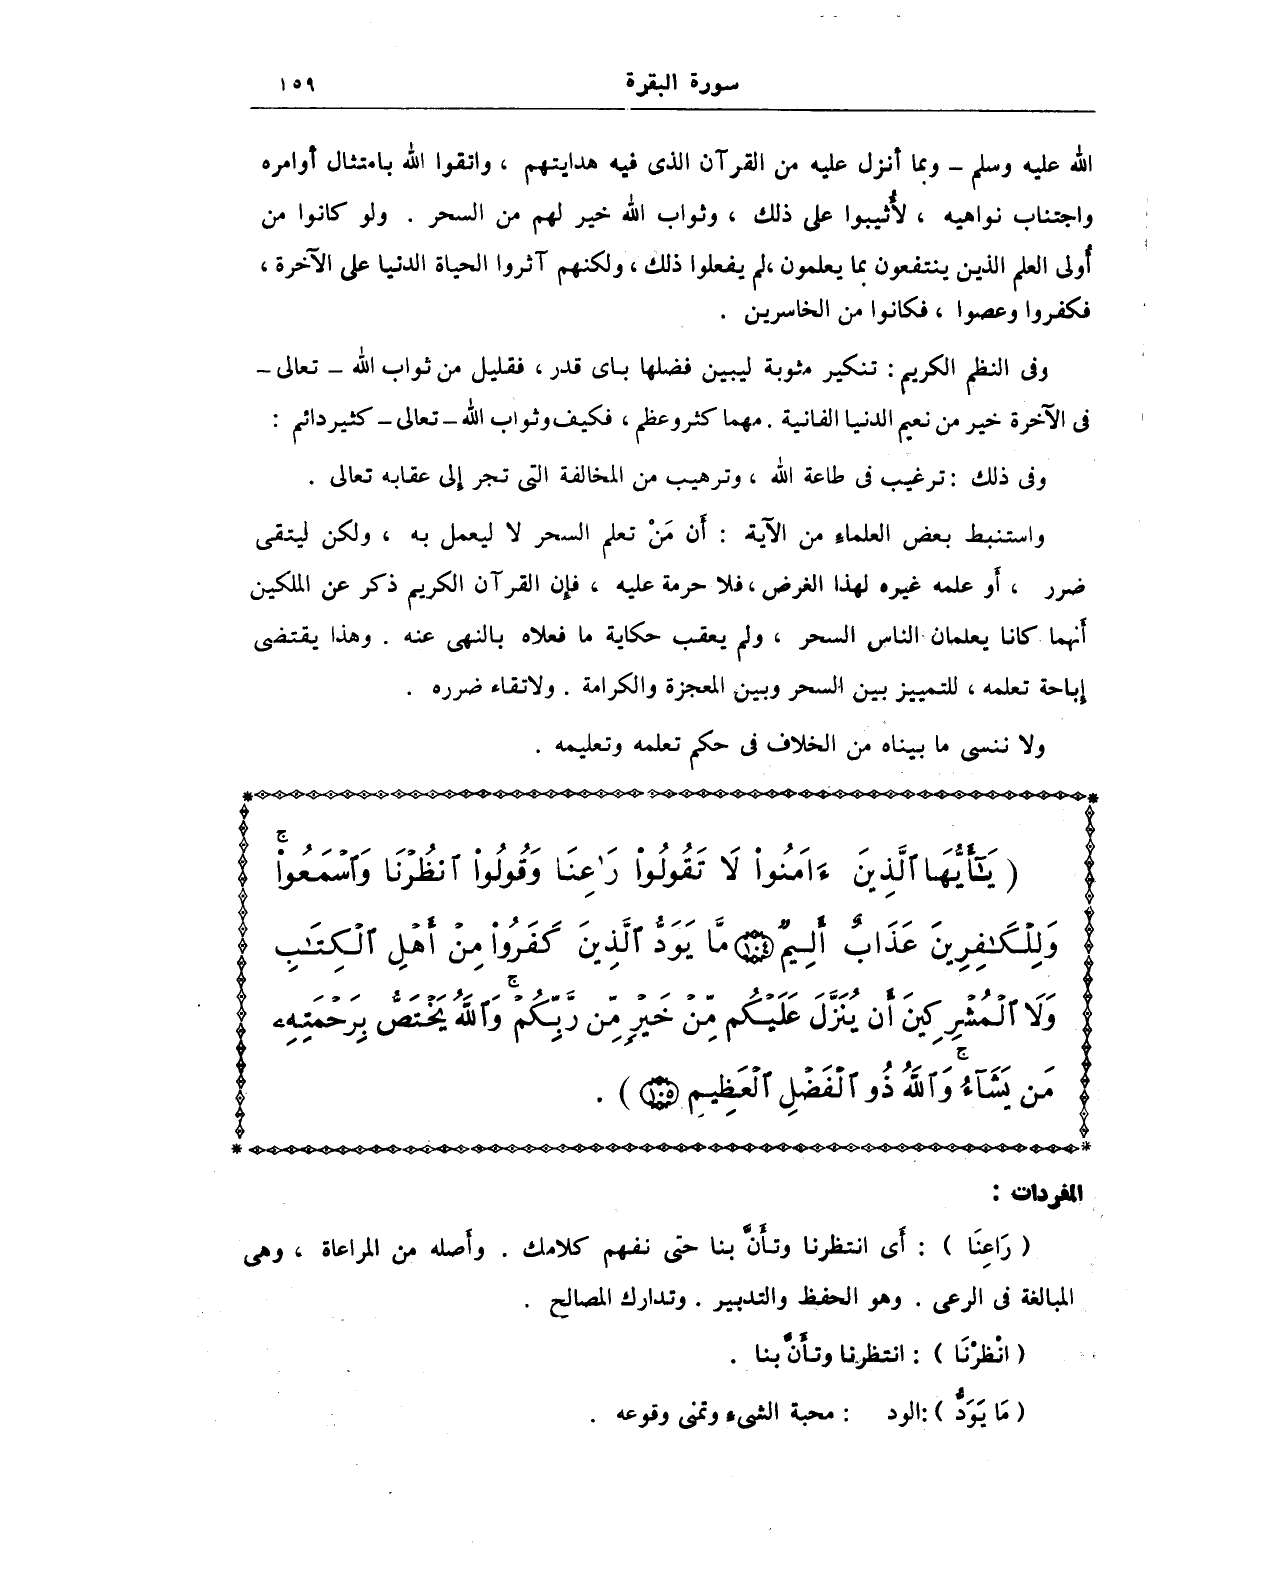 سورة البقرة ١٥٩
الله عليه وسلم – وبما أنزل عليه من القرآن الذى فيه هدايتهم ، واتقوا الله بامتثال أوامره
واجتناب نواهيه ، لأُثيبوا على ذلك ، وثواب الله خير لهم من السحر . ولو كانوا من
أُولى العلم الذين ينتفعون بما يعلمون ،لم يفعلوا ذلك ، ولكنهم آثروا الحياة الدنيا على الآخرة ،
فكفروا وعصوا ، فكانوا من الخاسرين .
وفى النظم الكريم : تنكير مثوبة ليبين فضلها بأى قدر ، فقليل من ثواب الله – تعالى –
فى الآخرة خير من نعيم الدنيا الفانية . مهما كثر وعظم ، فكيف وثواب الله – تعالى – كثير دائم :
وفى ذلك : ترغيب فى طاعة الله ، وترهيب من المخالفة التى تجر إلى عقابه تعالى .
واستنبط بعض العلماء من الآية : أَن مَنْ تعلم السحر لا ليعمل به ، ولكن ليتقى
ضرر ، أَو علمه غيره لهذا الغرض ، فلا حرمة عليه ، فإن القرآن الكريم ذكر عن الملكين
أَنهما كانا يعلمان الناس السحر ، ولم يعقب حكاية ما فعلاه بالنهى عنه . وهذا يقتضى
إباحة تعلمه ، للتمييز بين السحر وبين المعجزة والكرامة . ولاتقاء ضرره .
ولا ننسى ما بيناه من الخلاف فى حكم تعلمه وتعليمه .
( يَـٰٓأَيُّهَا ٱلَّذِينَ ءَامَنُوا۟ لَا تَقُولُوا۟ رَٰعِنَا وَقُولُوا۟ ٱنظُرْنَا وَٱسْمَعُوا۟ ۗ
وَلِلْكَـٰفِرِينَ عَذَابٌ أَلِيمٌ ١٠٤ مَّا يَوَدُّ ٱلَّذِينَ كَفَرُوا۟ مِنْ أَهْلِ ٱلْكِتَـٰبِ
وَلَا ٱلْمُشْرِكِينَ أَن يُنَزَّلَ عَلَيْكُم مِّنْ خَيْرٍ مِّن رَّبِّكُمْ ۚ وَٱللَّهُ يَخْتَصُّ بِرَحْمَتِهِۦ
مَن يَشَآءُ ۚ وَٱللَّهُ ذُو ٱلْفَضْلِ ٱلْعَظِيمِ ١٠٥ ) .
المفردات :
( رَاعِنَا ) : أَى انتظرنا وتأَنَّ بنا حتى نفهم كلامك . وأَصله من المراعاة ، وهى
المبالغة فى الرعى . وهو الحفظ والتدبير . وتدارك المصالح .
( انْظُرْنَا ) : انتظرنا وتأَنَّ بنا .
( مَا يَوَدُّ ) :الود : محبة الشىء وتمنى وقوعه .